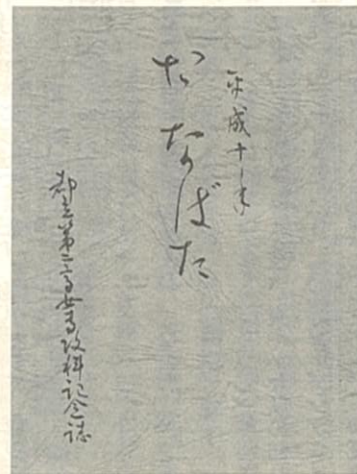 平成十年
たなばた
都立第二高女高攻科記念誌